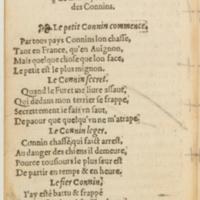 des Connins.
Le petit Connin commence,
Par tous pays Connins lon chasse,
Tant en France, qu'en Auignon,
Mais quelque chose que lon face,
Le petit est le plus mignon.
Le Connin secret.
Quand le Furet me liure assaut,
Qui dedans mon terrier se frappe,
Secrettement ie fais vn saut,
De paour que quelqu'vn ne m'atrape.
Le Connin leger.
Connin chassé, qui faict arrest,
Au danger des chiens il demeure,
Pource tousiours le plus seur est
De partir en temps & en heure.
Le fier Connin,
I'ay esté battu & frappé